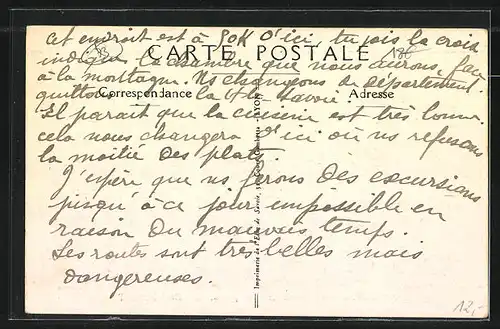 cet endroit est à 90K d'ici, tu vois la croix
CARTE POSTALE
indique la chambre que nous aurons, face
à la montagne. Ns changeons de département,
quittons la Hte-Savoie.
Correspondance
Adresse
Il parait que la cuisine est très bonne
cela nous changera d'ici où ns refusons
la moitié des plats.
J'espère que ns ferons des excursions
jusqu'à ce jour impossible en
raison du mauvais temps.
Les routes sont très belles mais
dangereuses.
12,-